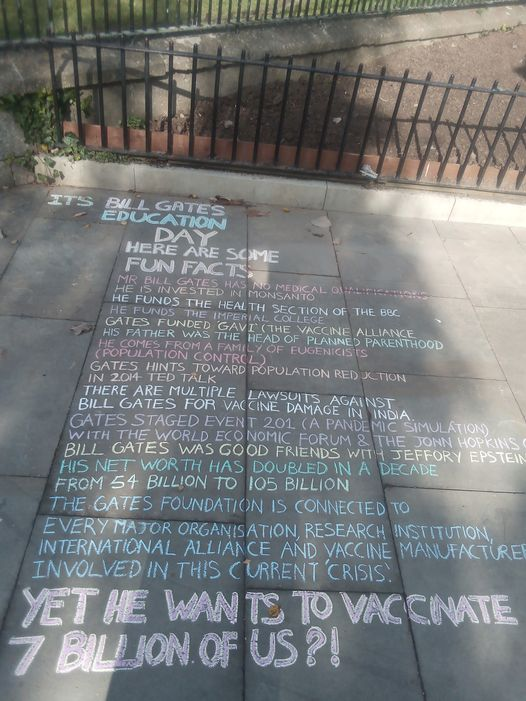 IT'S BILL GATES
EDUCATION
DAY
HERE ARE SOME
FUN FACTS
MR BILL GATES HAS NO MEDICAL QUALIFICATIONS
HE IS INVESTED IN MONSANTO
HE FUNDS THE HEALTH SECTION OF THE BBC
HE FUNDS THE IMPERIAL COLLEGE
GATES FUNDED GAVI (THE VACCINE ALLIANCE
HIS FATHER WAS THE HEAD OF PLANNED PARENTHOOD
HE COMES FROM A FAMILY OF EUGENICISTS
(POPULATION CONTROL)
GATES HINTS TOWARD POPULATION REDUCTION
IN 2014 TED TALK
THERE ARE MULTIPLE LAWSUITS AGAINST
BILL GATES FOR VACCINE DAMAGE IN INDIA
GATES STAGED EVENT 201 (A PANDEMIC SIMULATION)
WITH THE WORLD ECONOMIC FORUM & THE JOHN HOPKINS
BILL GATES WAS GOOD FRIENDS WITH JEFFORY EPSTEIN
HIS NET WORTH HAS DOUBLED IN A DECADE
FROM 54 BILLION TO 105 BILLION
THE GATES FOUNDATION IS CONNECTED TO
EVERY MAJOR ORGANISATION, RESEARCH INSTITUTION,
INTERNATIONAL ALLIANCE AND VACCINE MANUFACTURER
INVOLVED IN THIS CURRENT 'CRISIS'.
YET HE WANTS TO VACCINATE
7 BILLION OF US?!